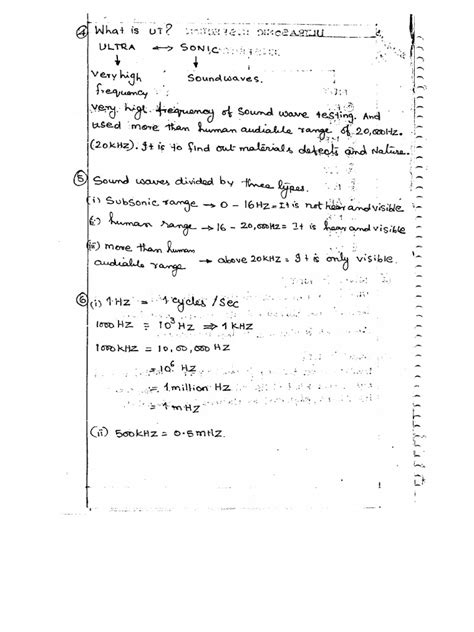 ④ What is UT?
ULTRA ↔ SONIC
↓ ↓
Very high Soundwaves.
frequency
very high frequency of Sound wave testing. And
used more than human audiable range of 20,000Hz.
(20KHz). It is to find out materials defects and Nature.
⑤ Sound waves divided by three types.
(i) Subsonic range → 0 - 16Hz = It is not hear and visible
(ii) human range → 16 - 20,000Hz = It is hear and visible
(iii) more than human
audiable range → above 20KHz = It is only visible.
⑥ (i) 1 HZ = 1 cycles / Sec
1000 HZ = 10³ HZ ⇒ 1 KHZ
1000 KHZ = 10,00,000 HZ
= 10⁶ HZ
= 1 million HZ
= 1 mHZ
(ii) 500KHZ = 0.5mHZ.